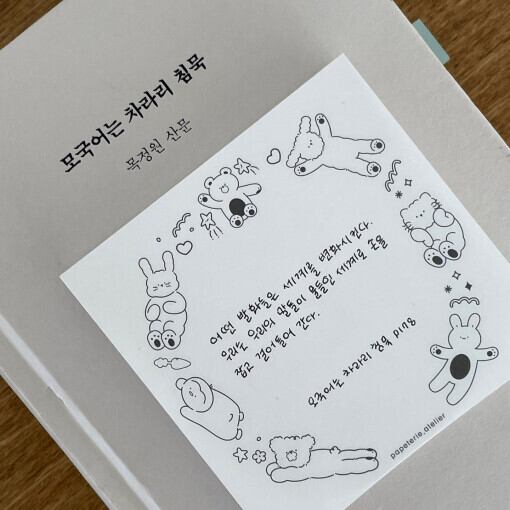 모국어는 차라리 침묵
목정원 산문
어떤 발화들은 세계를 변화시킨다.
우리는 우리의 말들이 물들인 세계로 손을
잡고 걸어들어 간다.
모국어는 차라리 침묵 P.108
papeterie.atelier